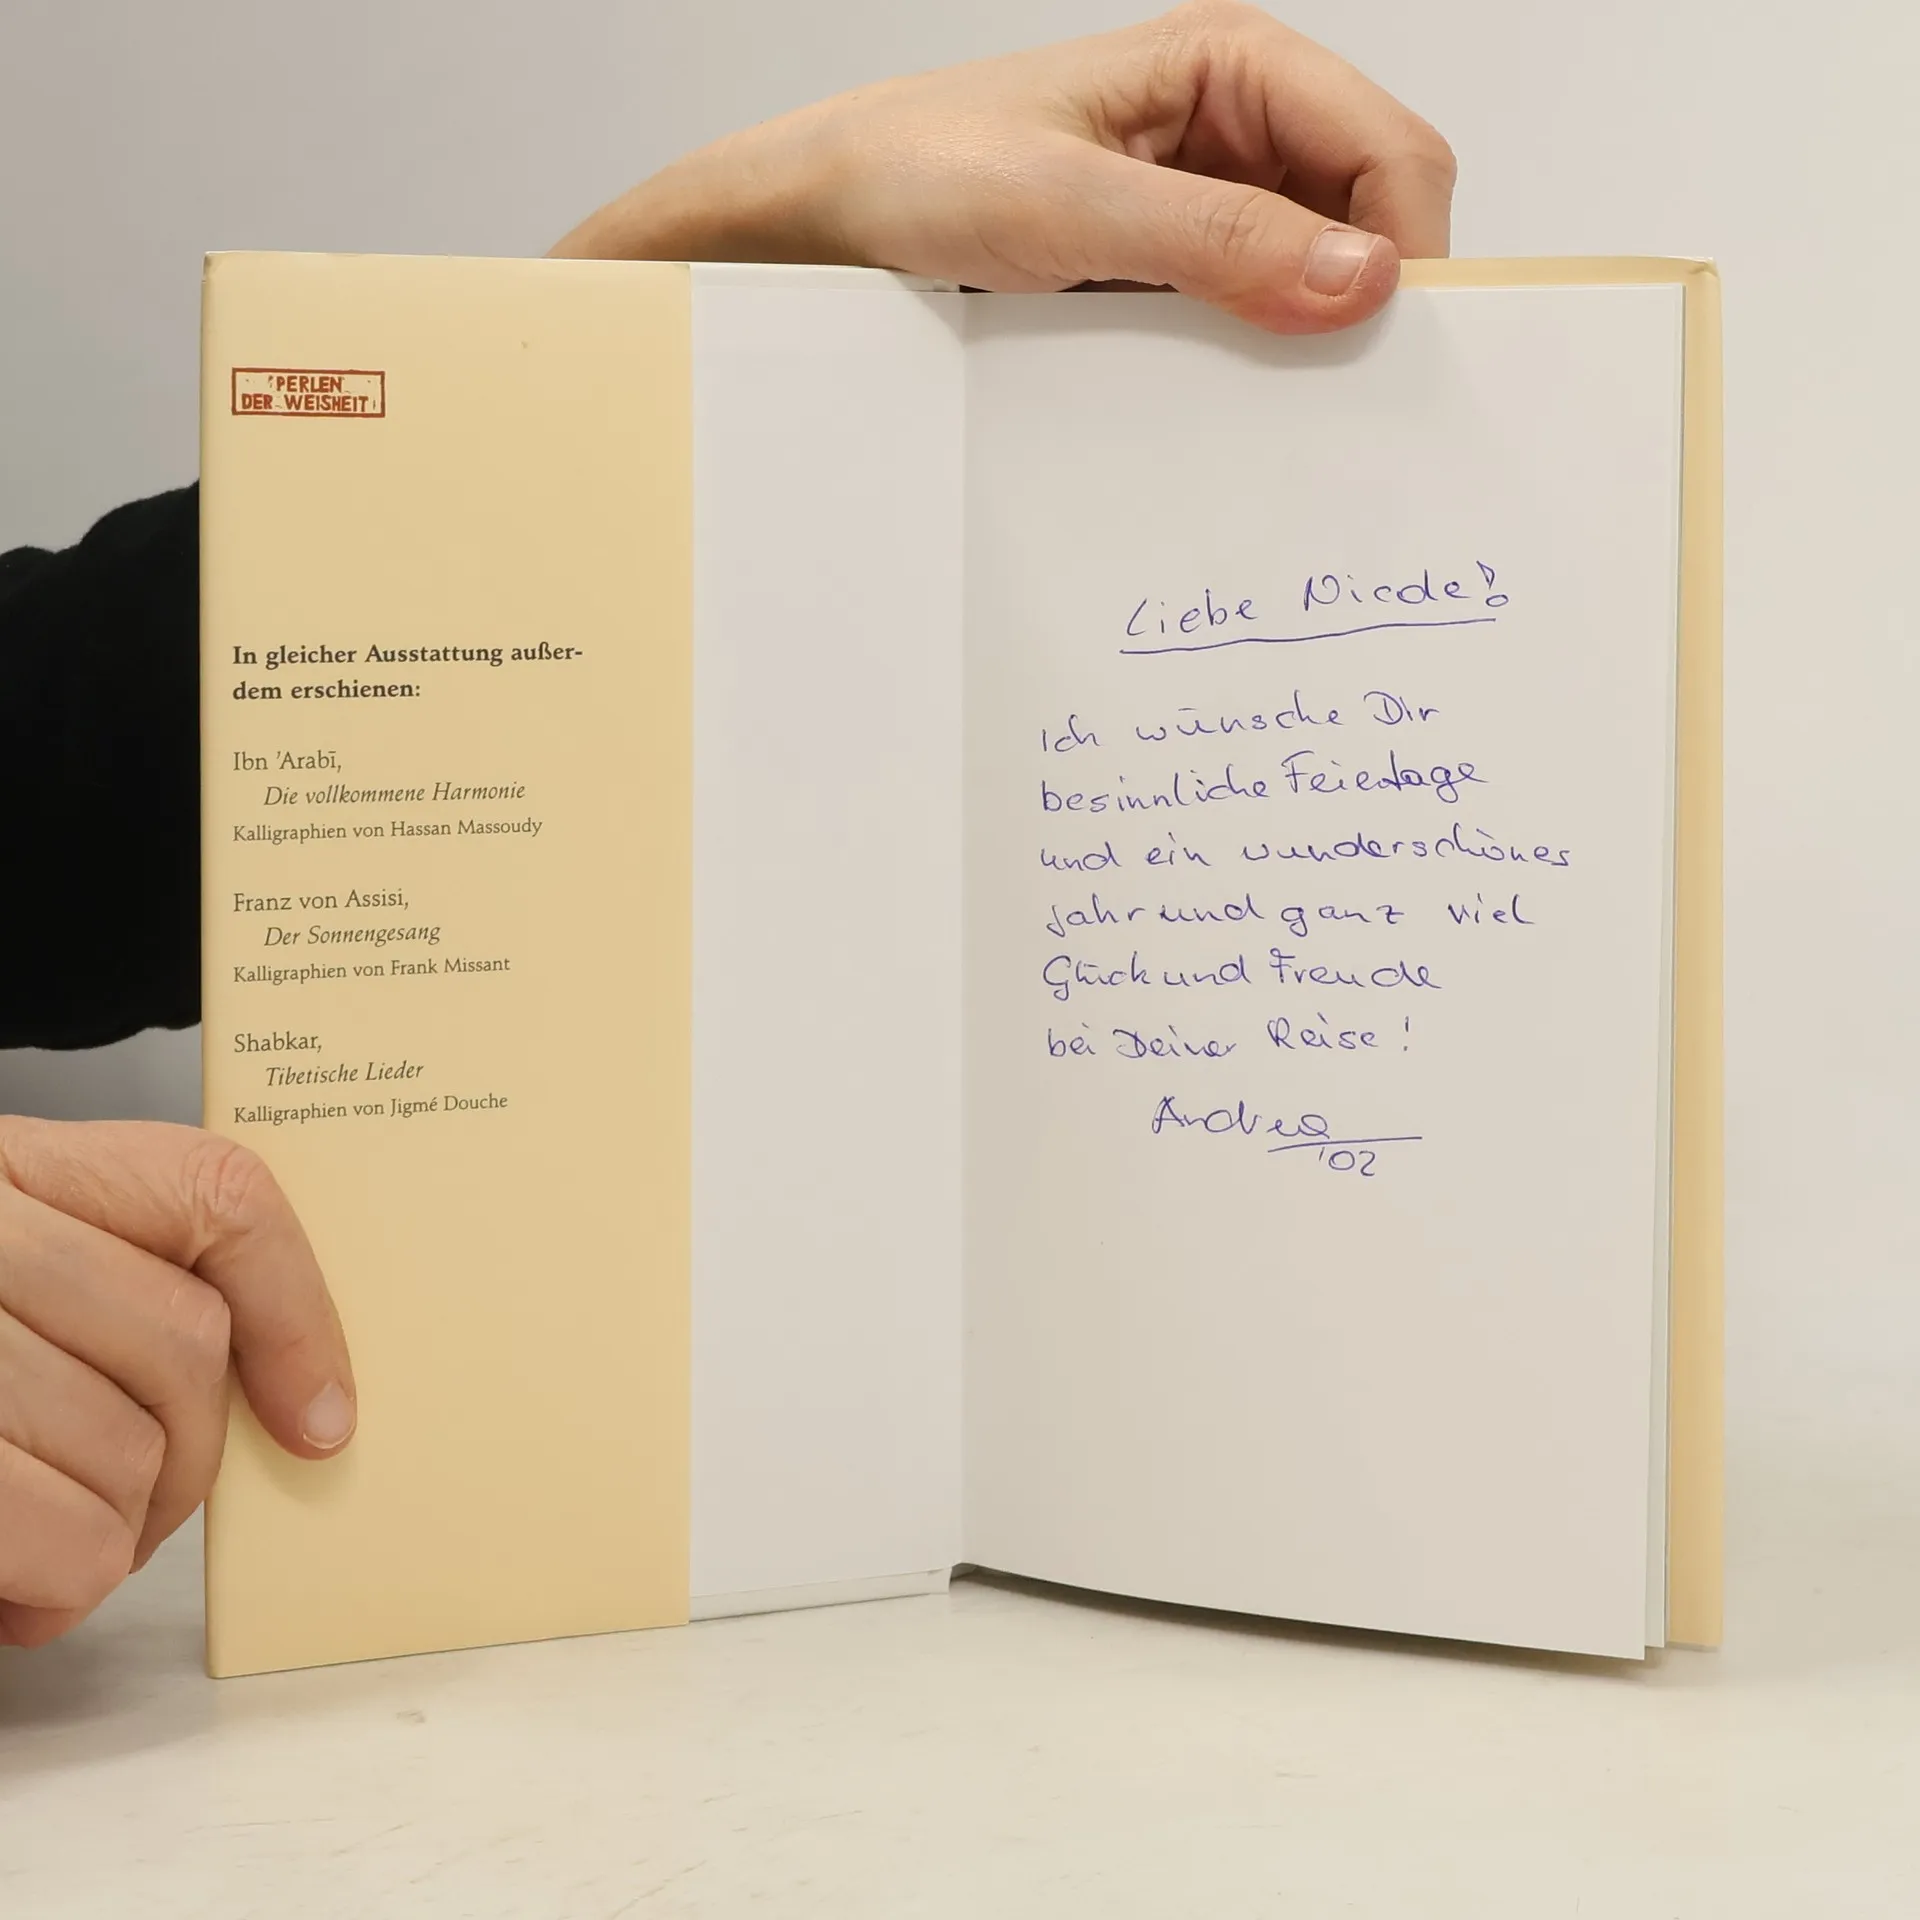 PERLEN
DER WEISHEIT
In gleicher Ausstattung außer-
dem erschienen:
Ibn 'Arabī,
Die vollkommene Harmonie
Kalligraphien von Hassan Massoudy
Franz von Assisi,
Der Sonnengesang
Kalligraphien von Frank Missant
Shabkar,
Tibetische Lieder
Kalligraphien von Jigmé Douche
Liebe Nicole!
Ich wünsche Dir
besinnliche Feiertage
und ein wunderschönes
Jahr und ganz viel
Glück und Freude
bei Deiner Reise!
Andrea
'02